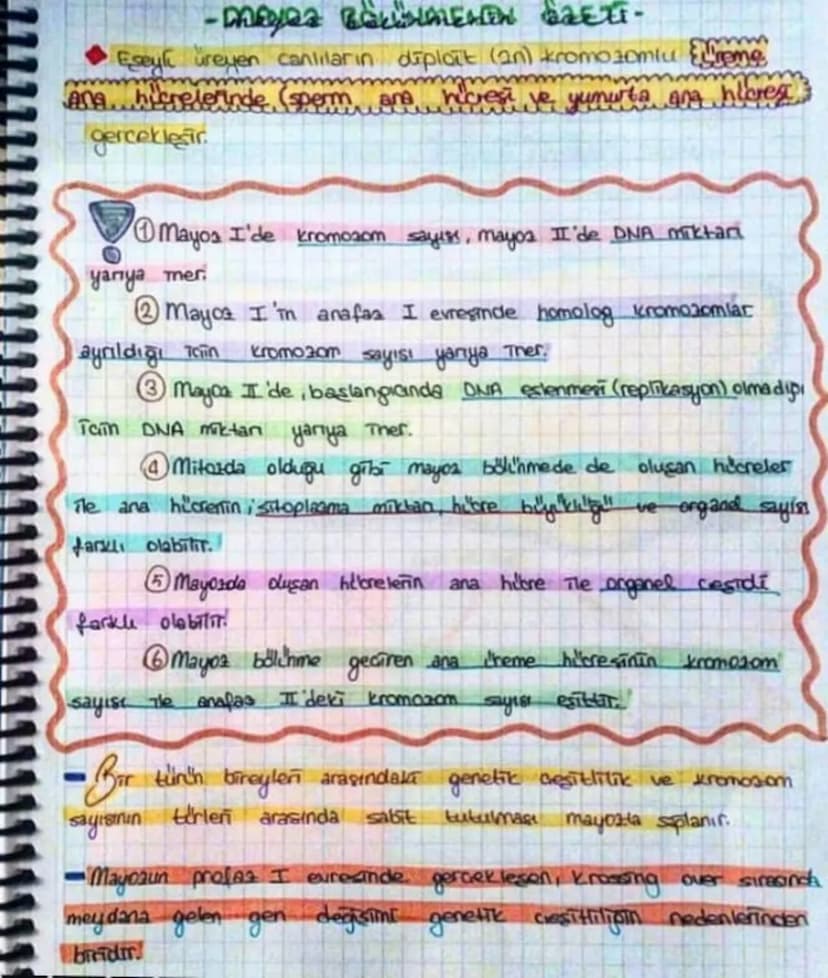 -MAYOZ BÖLÜNMENİN ÖZETİ-
Eşeyli üreyen canlıların diploit (2n) kromozomlu üreme
ana hücrelerinde (sperm ana hücresi ve yumurta ana hücresi
gerçekleşir.
① Mayoz I'de kromozom sayısı, mayoz II'de DNA miktarı
yarıya iner.
② Mayoz I'in anafaz I evresinde homolog kromozomlar
ayrıldığı için kromozom sayısı yarıya iner.
③ Mayoz II'de, başlangıcında DNA eşlenmesi (replikasyon) olmadığı
için DNA miktarı yarıya iner.
④ Mitozda olduğu gibi mayoz bölünmede de oluşan hücreler
ile ana hücrenin; sitoplazma miktarı, hücre büyüklüğü ve organel sayısı
farklı olabilir.
⑤ Mayozda oluşan hücrelerin ana hücre ile organel çeşidi
farklı olabilir.
⑥ Mayoz bölünme geçiren ana üreme hücresinin kromozom
sayısı ile anafaz II'deki kromozom sayısı eşittir.
- Bir türün bireyleri arasındaki genetik çeşitlilik ve kromozom
sayısının türleri arasında sabit tutulması mayozla sağlanır.
- Mayozun profaz I evresinde gerçekleşen, krossing over sırasında
meydana gelen gen değişimi genetik çeşitliliğin nedenlerinden
biridir.